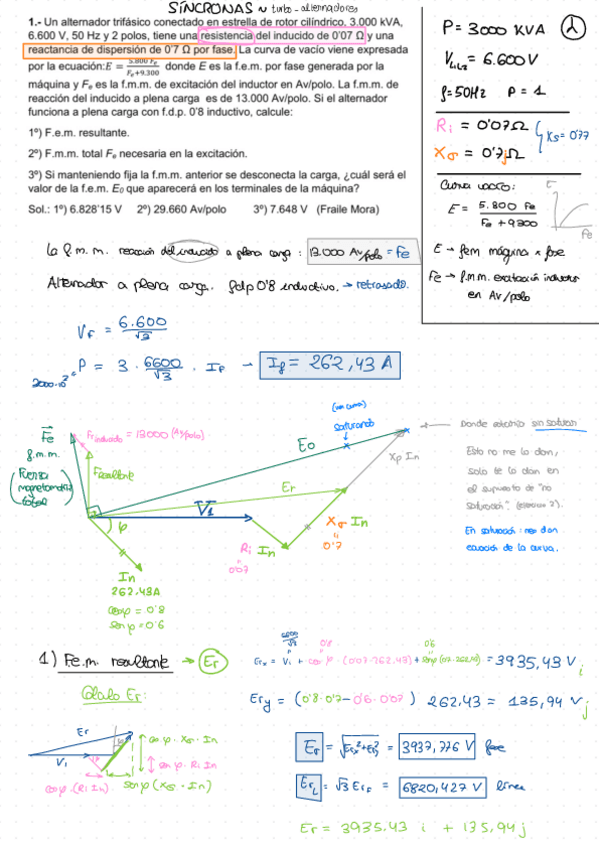 SÍNCRONAS ~ turbo-alternadores
1.- Un alternador trifásico conectado en estrella de rotor cilíndrico, 3.000 kVA,
6.600 V, 50 Hz y 2 polos, tiene una resistencia del inducido de 0'07 Ω y una
reactancia de dispersión de 0'7 Ω por fase. La curva de vacío viene expresada
por la ecuación: E = 5.800 Fe / Fe+9.300 donde E es la f.e.m. por fase generada por la
máquina y Fe es la f.m.m. de excitación del inductor en Av/polo. La f.m.m. de
reacción del inducido a plena carga es de 13.000 Av/polo. Si el alternador
funciona a plena carga con f.d.p. 0'8 inductivo, calcule:
1º) F.e.m. resultante.
2º) F.m.m. total Fe necesaria en la excitación.
3º) Si manteniendo fija la f.m.m. anterior se desconecta la carga, ¿cuál será el
valor de la f.e.m. E0 que aparecerá en los terminales de la máquina?
Sol.: 1º) 6.828'15 V 2º) 29.660 Av/polo 3º) 7.648 V (Fraile Mora)
P = 3000 KVA
VL1L2 = 6.600 V
f = 50Hz P = 1
Ri = 0'07 Ω
Xσ = 0'7j Ω
Ks = 0'77
Curva vacío:
E
Fe
E = 5.800 Fe / Fe + 9300
E → fem máquina x fase
Fe → f.m.m. excitación inductor
en Av/polo
La f.m.m. reacción del inducido a plena carga : 13.000 Av/polo = Fe
Alternador a plena carga. fdp 0'8 inductivo. → retrasado.
VF = 6.600 / √3
P = 3 · 6600/√3 · IF → If = 262,43 A
Fe
f.m.m.
(Fuerza
magnetomotriz
total)
Finducido = 13000 (Av/polo)
Fresultante
(con curva)
saturando
E0
Xp In
Er
V1
φ
Ri In
0'07
Xσ In
0'7
In
262,43A
cosφ = 0'8
senφ = 0'6
Donde estaría sin saturar
Esto no me lo dan,
solo te lo dan en
el supuesto de "no
saturación".
En saturación: nos dan
ecuación de la curva.
1) F.e.m. resultante → Er
Cálculo Er:
6600/√3
0'8
0'6
Erx = V1 + cos φ · (0'07·262,43) + senφ (0'7·262,43) = 3935,43 V i
Ery = (0'8·0'7 − 0'6·0'07) 262,43 = 135,94 V j
Er
V1
cosφ · Xσ · In
senφ · Ri · In
cosφ · (Ri In)
senφ (Xσ · In)
Er = √Erx²+Ery² = 3937,776 V fase
ErL = √3 ErF = 6820,427 V línea
Er = 3935.43 i + 135,94 j